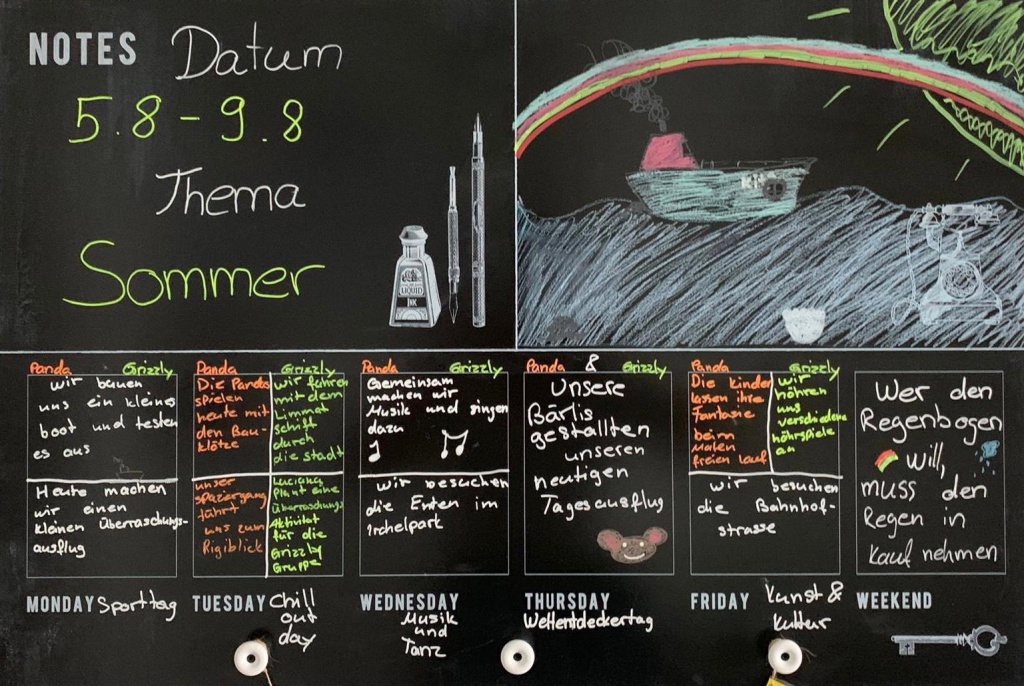 NOTES Datum
5.8 - 9.8
Thema
Sommer
LIQUID
INK
Panda Grizzly
wir bauen
uns ein kleines
boot und testen
es aus
Heute machen
wir einen
kleinen Überraschungs-
ausflug
MONDAY Sporttag
Panda
Die Pandas
spielen
heute mit
den Bau-
klötze
Grizzly
wir fahren
mit dem
Limmat
schiff
durch
die stadt
unser
spaziergang
führt
uns zum
Rigiblick
Luciana
Plant eine
Überraschungs
Aktivität
für die
Grizzly
Gruppe
TUESDAY Chill
out
day
Panda Grizzly
Gemeinsam
machen wir
Musik und singen
dazu
wir besuchen
die Enten im
Irchelpark
WEDNESDAY
Musik
und
Tanz
Panda & Grizzly
Unsere
Bärlis
gestallten
unseren
heutigen
Tagesausflug
THURSDAY
Weltentdeckertag
Panda
Die kinder
lassen ihre
Fantasie
beim
Malen
freien lauf
Grizzly
wir
höhren
uns
verschiedene
höhrspiele
an
wir besuchen
die Bahnhof-
strasse
FRIDAY Kunst &
kultur
Wer den
Regenbogen
will,
muss den
Regen in
kauf nehmen
WEEKEND